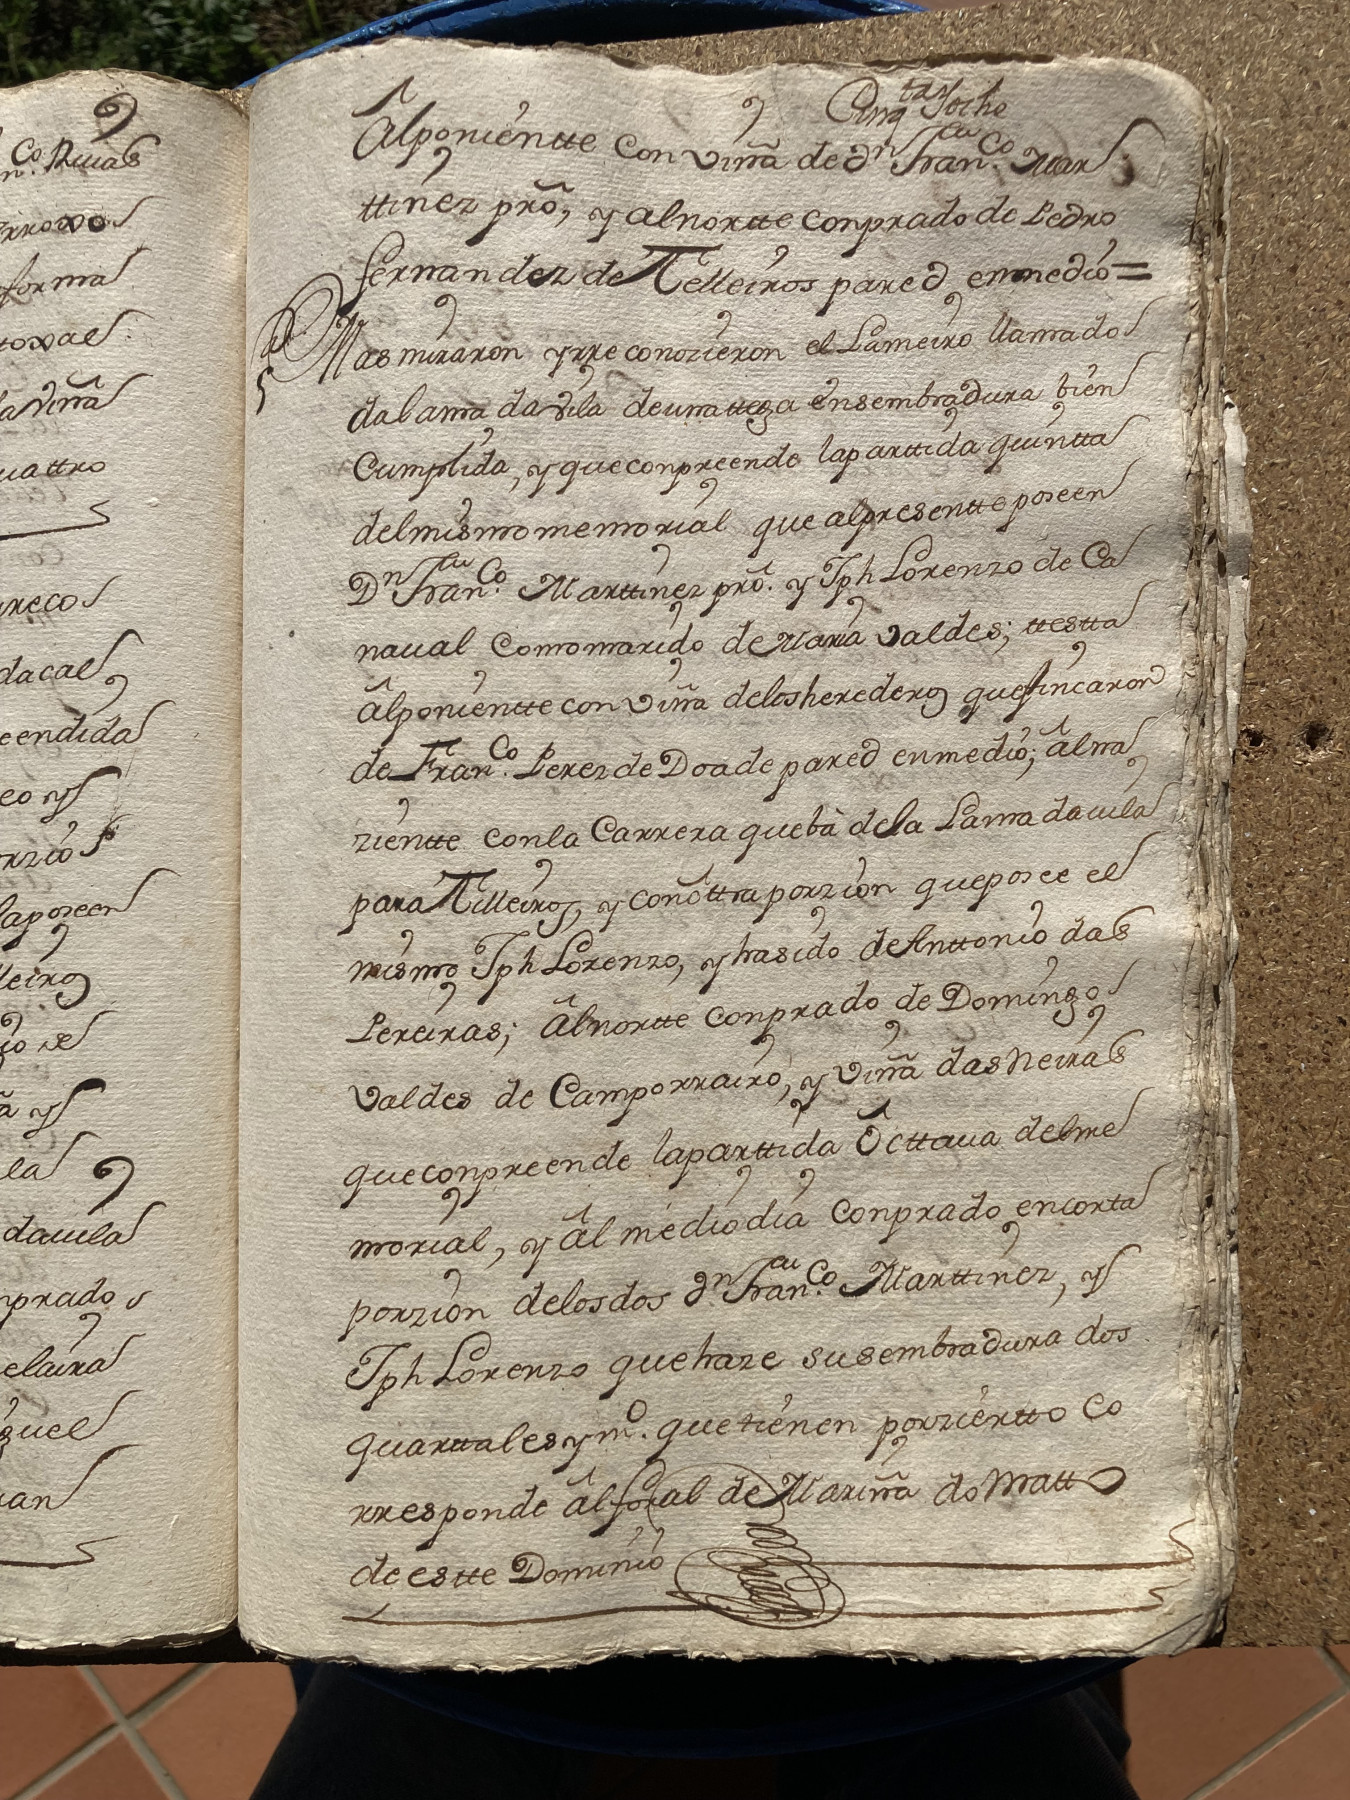 n.co Riuas
rroxo
forma
toxal
la viña
uattro
areco
dacal,
eendida
eo y
rzio
la poseen
lleiros
io se
a y
la
dauila
nprado
elaira
guel
ran
Cinqta y ocho
Âl poniente con viña de dn Franco. Mar
ttinez prô, y al nortte con prado de Pedro
fernandez de Telleiros pared enmedio=
Mas miraron y rreconozieron el Lameiro llamado
da lama da vila de una ttega ensembradura bien
Cumplida, y que conpreende la parttida quintta
del mismo memorial que al presentte poseen
Dn Franco. Marttinez prô. y Jph Lorenzo de Ca
naual como marido de Maria Valdes; ttestta
Âl ponientte con viña de los herederos que fincaron
de Franco. Perez de Doade pared enmedio; âl na
zientte con la Carrera que bà de la Lama da uila
para Tilleiros, y con ôttra porzion que posee el
mismo Jph Lorenzo, y ha sido de Anttonio das
Pereiras; âl nortte con prado de Domingo
Valdes de Camporrairo, y viña das Neiras
que conpreende la parttida Ôcttaua del me
morial, y âl mediodia con prado en corta
porzion de los dos dn Franco. Marttinez, y
Jph Lorenzo que haze su sembradura dos
quarttales y mo. que tienen por zierto co
rresponde âl foral de Mariña do Matto
de estte Dominio